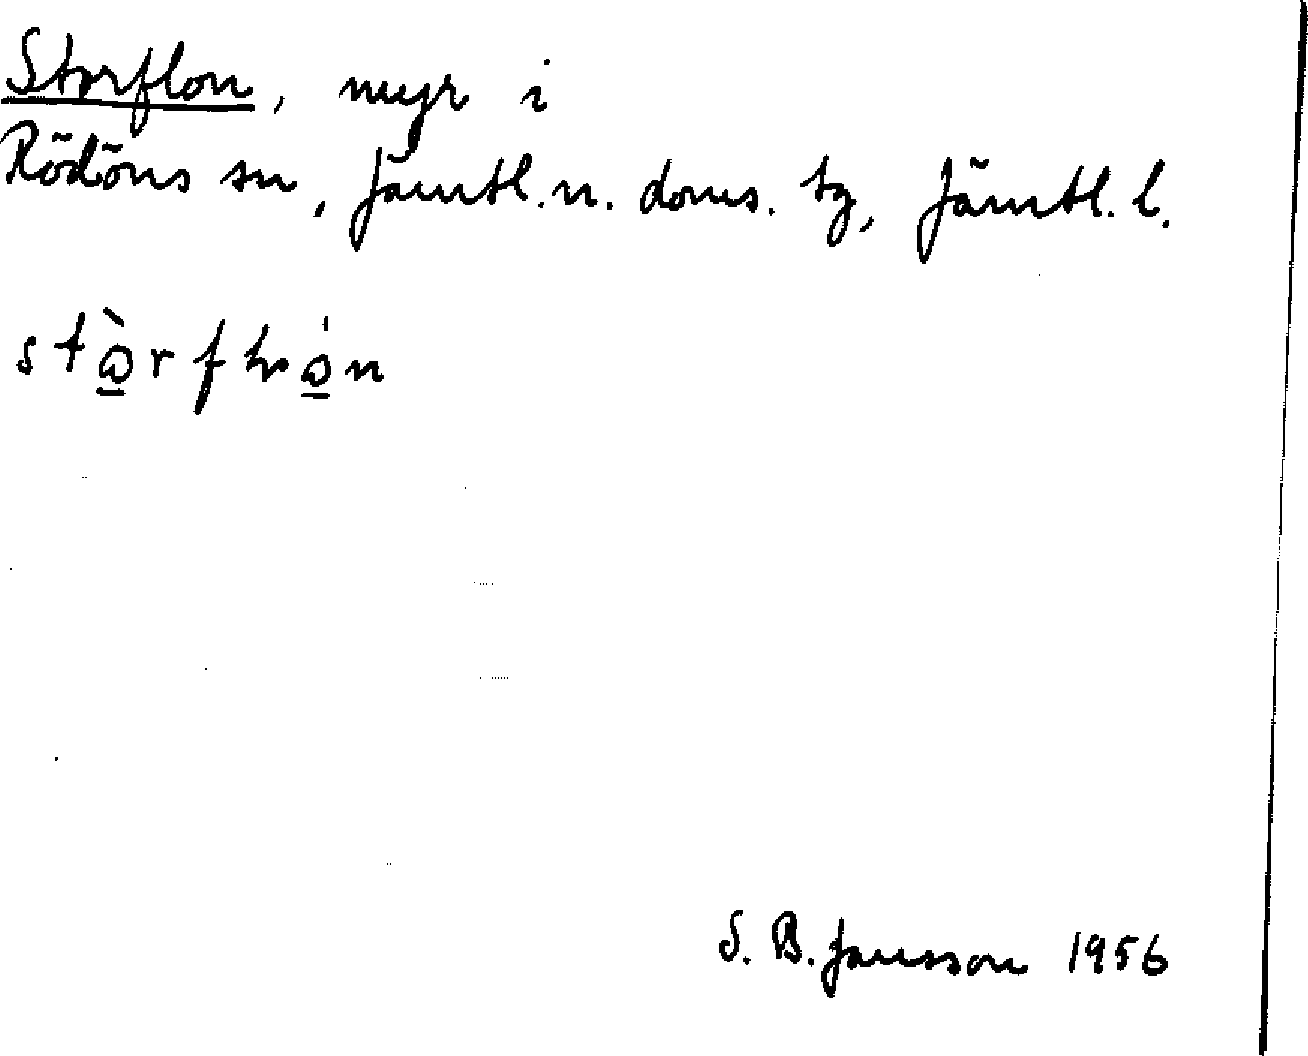 Storflon, myr i
Rödöns sn, Jämtl. n. doms. tg, Jämtl. l.
S. B. Jansson 1956